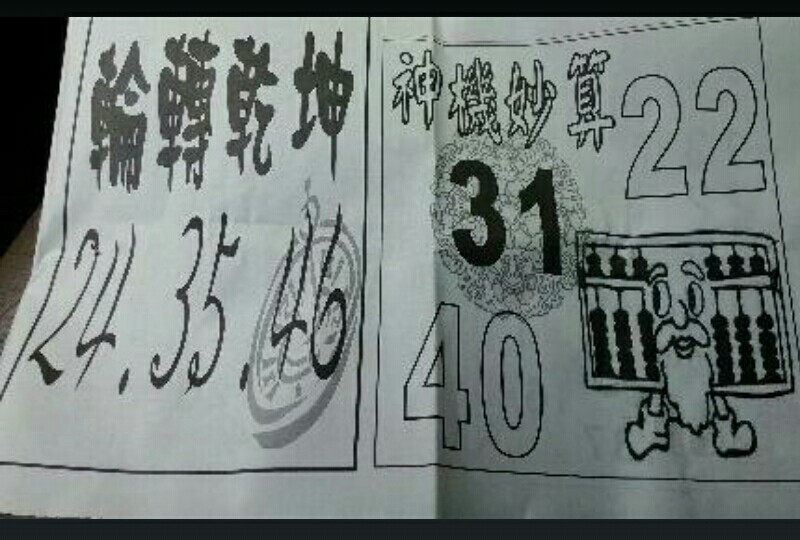 輪轉乾坤
24.35.46
神機妙算
22
31
40